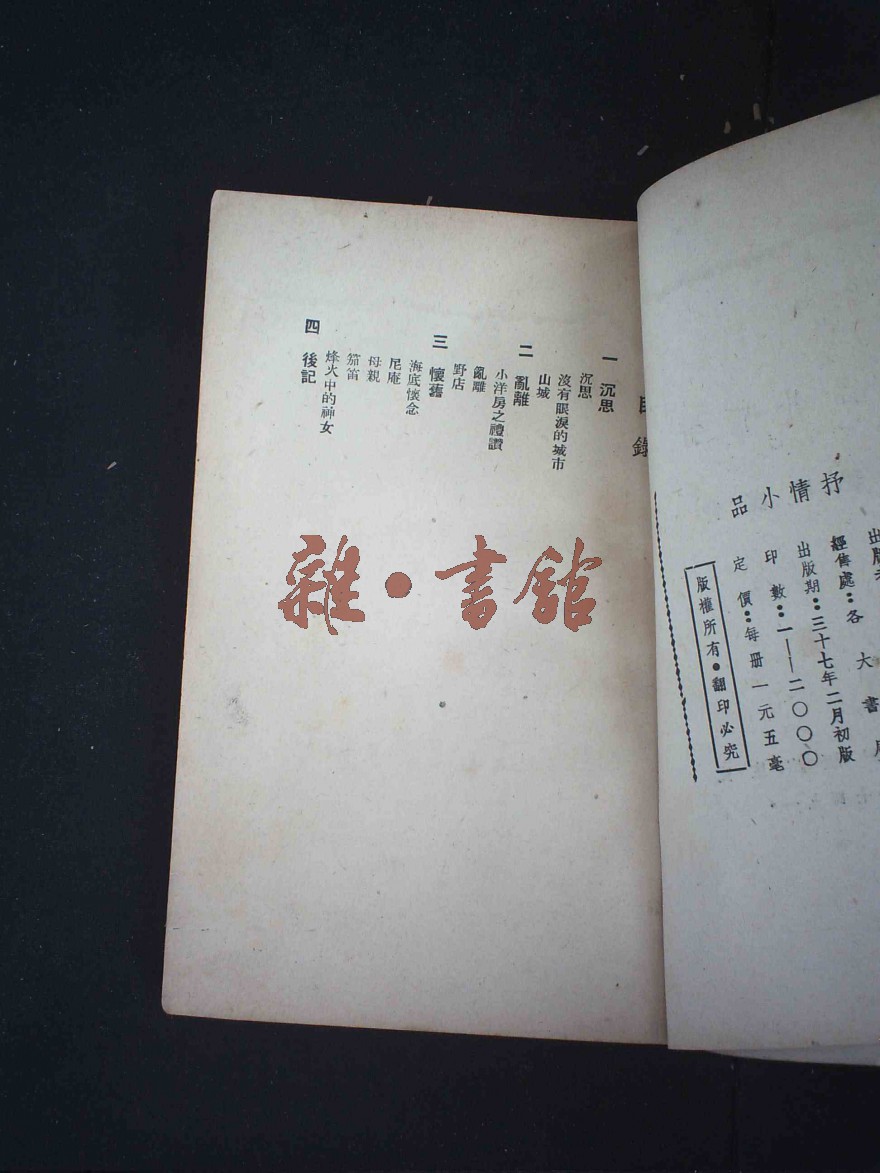 抒情小品
經售處：各大書局
出版期：三十七年二月初版
印數：一——二〇〇〇
定價：每册一元五毫
版權所有●翻印必究
目錄
一 沉思
沉思
沒有眼淚的城市
山城
二 亂離
小洋房之禮讚
亂離
野店
三 懷舊
海底懷念
尼庵
母親
笳笛
烽火中的神女
四 後記
雜·書館